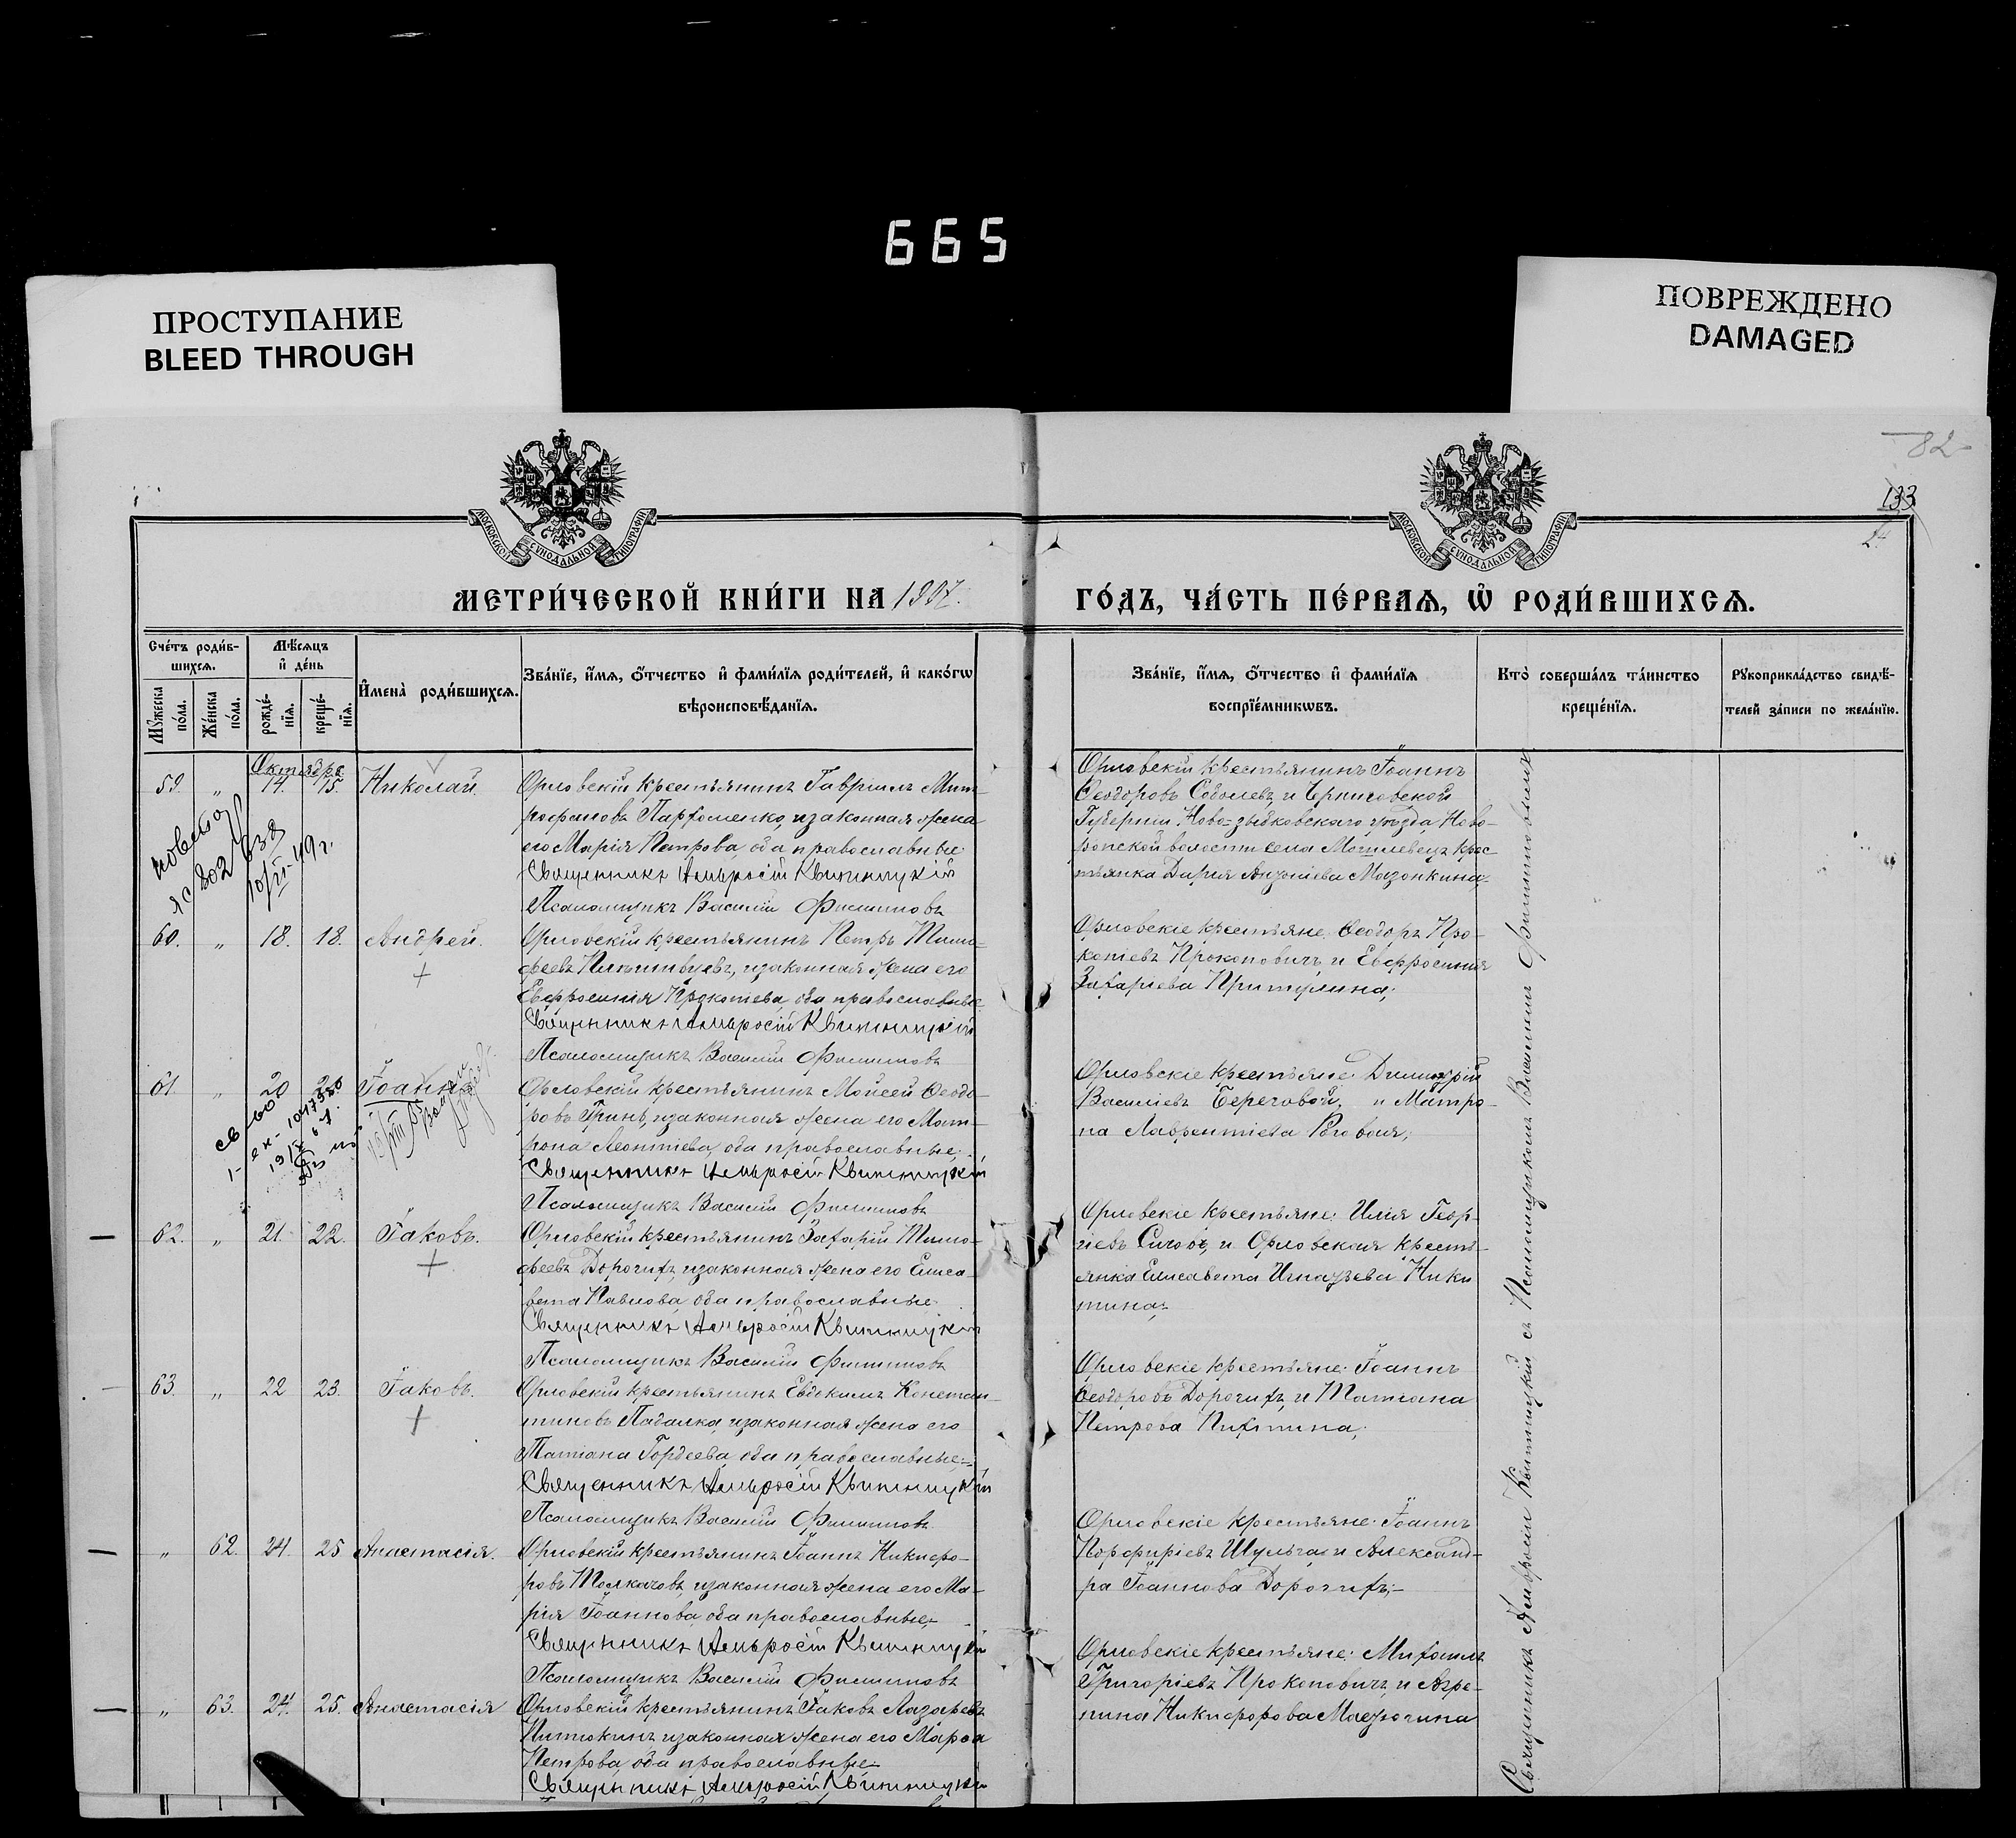 665
ПРОСТУПАНИЕ
BLEED THROUGH
ПОВРЕЖДЕНО
DAMAGED
82
133
МОСКОВСКОЙ СѴНОДАЛЬНОЙ ТИПОГРАФІИ
МОСКОВСКОЙ СѴНОДАЛЬНОЙ ТИПОГРАФІИ
МЕТРИ́ЧЕСКОЙ КНИ́ГИ НА
ГО́ДЪ, ЧА́СТЬ ПЕ́РВАѦ, Ѽ РОДИ́ВШИХСѦ.
Сче́тъ роди́в-
шихсѧ.
Мꙋжеска по́ла.
Же́нска по́ла.
Мѣ́сѧцъ
и҆ де́нь
рожде́-
нїѧ.
креще́-
нїѧ.
И҆мена̀ роди́вшихсѧ.
Зва́нїе, и҆́мѧ, ѻ҆́тчество и҆ фами́лїѧ роди́телей, и҆ како́гѡ
вѣроисповѣ́данїѧ.
Зва́нїе, и҆́мѧ, ѻ҆́тчество и҆ фами́лїѧ
воспрїе́мникѡвъ.
Кто̀ соверша́лъ та́инство
креще́нїѧ.
Рꙋкоприкла́дство свидѣ́-
телей за́писи по жела́нїю.
Октября
59. „ 14. 15. Николай.
Орловскій крестьянинъ Гавріилъ Мит-
рофановъ Пархоменко, и законная жена
его Марія Петрова, оба православные.
Священникъ Амвросій Квитницкій
Псаломщикъ Василій Филиповъ
Орловскій крестьянинъ Іоаннъ
Ѳеодоровъ Соболевъ, и Черниговской
Губерніи, Ново-зыбковскаго уѣзда, Ново-
ропской волости села Могилевецъ крес-
тьянка Дарія
60. „ 18. 18. Андрей.
Орловскій крестьянинъ Петръ Тимо-
феевъ и законная жена его
Евфросинія Прокопіева, оба православные
Священникъ Амвросій Квитницкій
Псаломщикъ Василій Филиповъ
Орловскіе крестьяне: Ѳеодоръ Про-
копіевъ Прокоповичъ и Евфросинія
Захаріева Притулина;
61. „ 20 Іоаннъ
Орловскій крестьянинъ Моисей Ѳеодо-
ровъ Гринь, и законная жена его Мат-
рона Леонтіева, оба православные;
Священникъ Амвросій Квитницкій
Псаломщикъ Василій Филиповъ
Орловскіе крестьяне: Димитрій
Василіевъ Береговой, и Матро-
на Лаврентіева Роговая;
62. „ 21. 22. Іаковъ.
Орловскій крестьянинъ Захарій Тимо-
феевъ Дорогихъ, и законная жена его Елиса-
вета Павлова, оба православные.
Священникъ Амвросій Квитницкій
Псаломщикъ Василій Филиповъ
Орловскіе крестьяне: Илія Геор-
гіевъ и Орловская кресть-
янка Елисавета Игнатьева Ники
тина;
63. „ 22 23. Іаковъ.
Орловскій крестьянинъ Евдокимъ Констан-
тиновъ Падалка, и законная жена его
Татіана Гордеева, оба православные;
Священникъ Амвросій Квитницкій
Псаломщикъ Василій Филиповъ
Орловскіе крестьяне: Іоаннъ
Ѳеодоровъ Дорогихъ, и Татіана
Петрова Пихтина;
„ 62. 24. 25 Анастасія.
Орловскій крестьянинъ Іоаннъ Никифо-
ровъ Толкачовъ, и законная жена его Ма-
рія Іоаннова, оба православные;
Священникъ Амвросій Квитницкій
Псаломщикъ Василій Филиповъ
Орловскіе крестьяне: Іоаннъ
Порфиріевъ Шульга и Александ-
ра Іоаннова Дорогихъ;
„ 63. 24. 25. Анастасія
Орловскій крестьянинъ Іаковъ Лазаревъ
и законная жена его Марѳа
Петрова, оба православные
Священникъ Амвросій Квитницкій
Орловскіе крестьяне: Михаилъ
Григоріевъ Прокоповичъ, и Агре-
пина Никифорова
Священникъ Амвросій Квитницкій съ Псаломщикомъ Василіемъ Филиповымъ